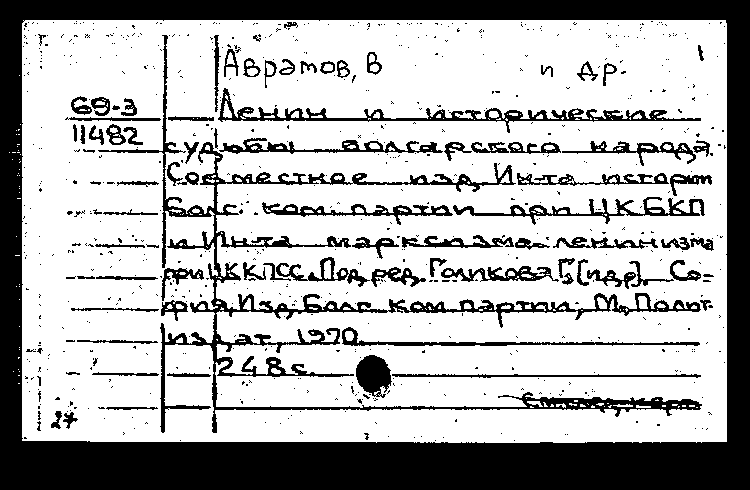 Аврамов, В и др.
69-3 Ленин и исторические
11482 судьбы болгарского народа.
Совместное изд. Ин-та истории
Болг. ком. партии при ЦК БКП
и Ин-та марксизма-ленинизма
при ЦК КПСС. Под ред. Голикова Г. [и др]. Со-
фия, Изд. Болг. ком. партии; М., Полит-
издат, 1970.
248 с.
См. след. карт.
27